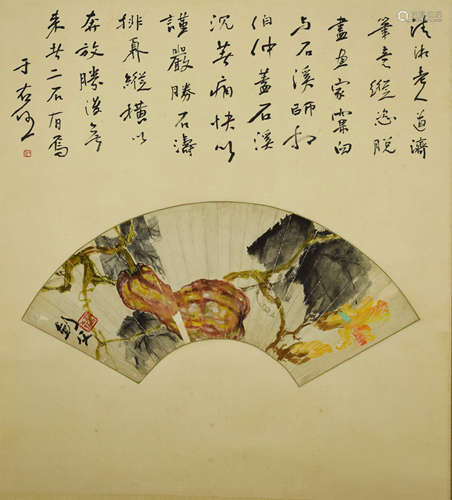 清湘老人道濟
筆意縱恣脱
盡畫家窠臼
与石溪師相
伯仲蓋石溪
沉著痛快以
謹嚴勝石濤
排奡縱橫以
奔放勝後無
來者二石有焉
于右任